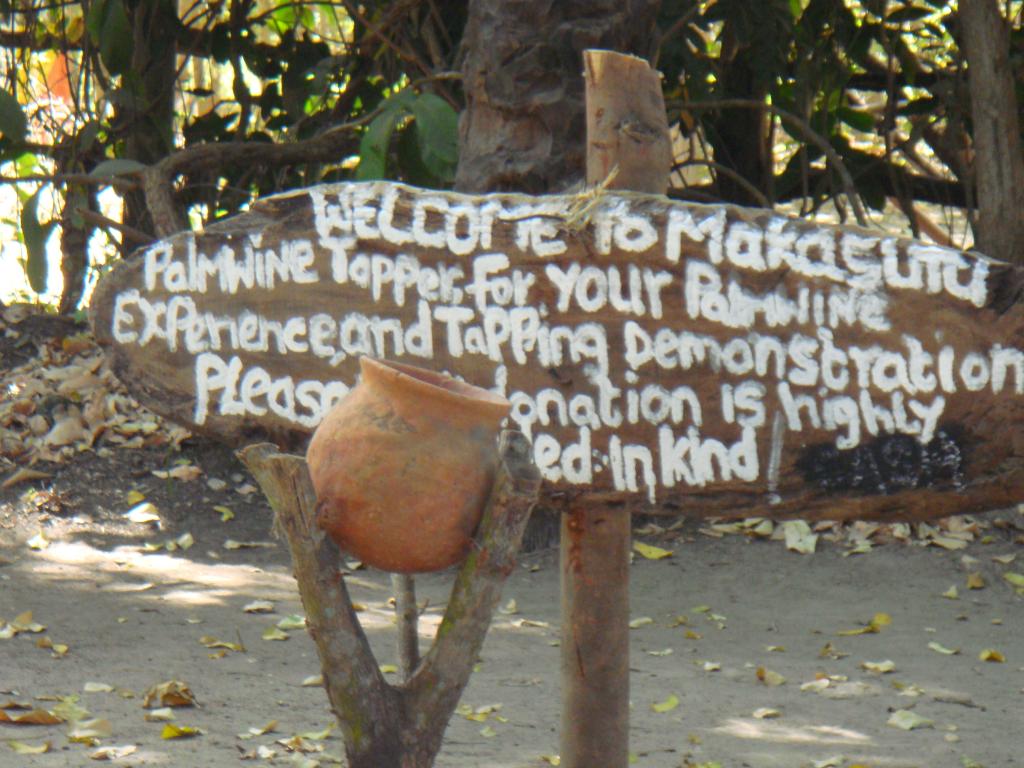 WELCOME To MakaSutu
PalmWine Tapper, for YOUR PalmWine
Experience, and Tapping Demonstration
Please donation is highly
ed in Kind